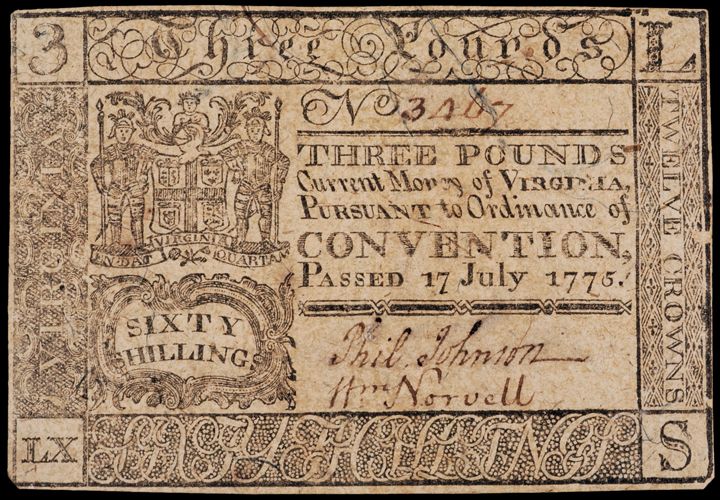 3 Three Pounds L
VIRGINIA
No 3467
THREE POUNDS
Current Money of VIRGINIA,
PURSUANT to Ordinance of
CONVENTION,
PASSED 17 July 1775.
EN DAT VIRGINIA QUARTAM
SIXTY
SHILLINGS
Phil. Johnson
Wm Norvell
TWELVE CROWNS
LX SIXTY SHILLINGS S